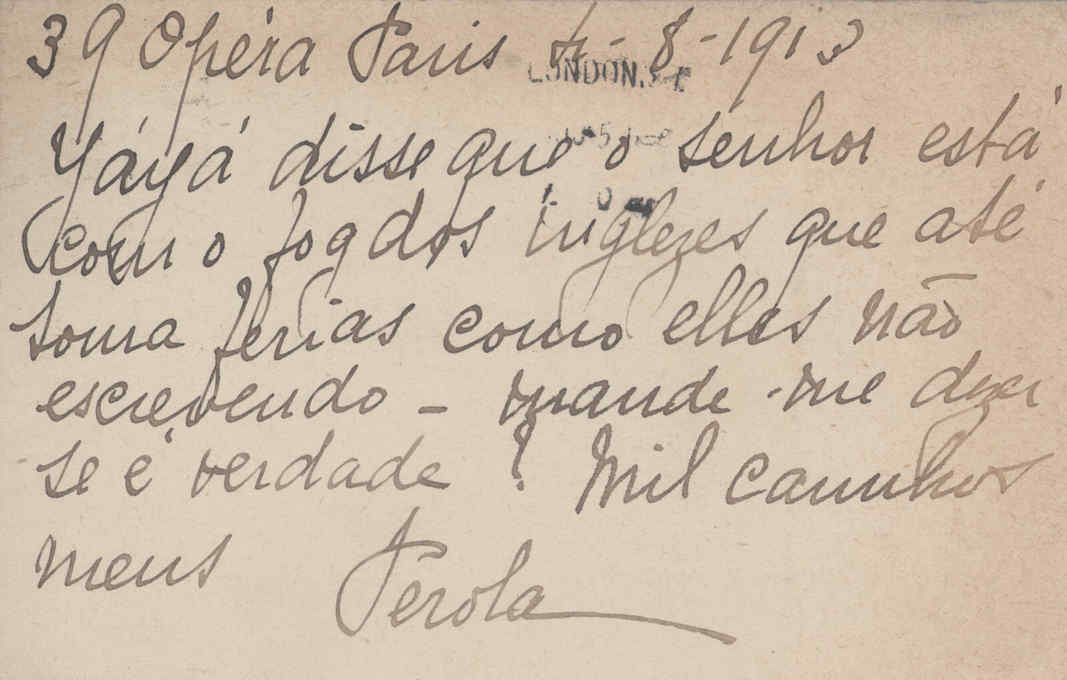 39 Opéra Paris 4-8-1913
LONDON.S.E
Yáyá disse que o senhor está
com o fog dos inglezes que até
toma ferias como elles não
escrevendo - mande-me dizer
se é verdade? Mil carinhos
meus Pérola